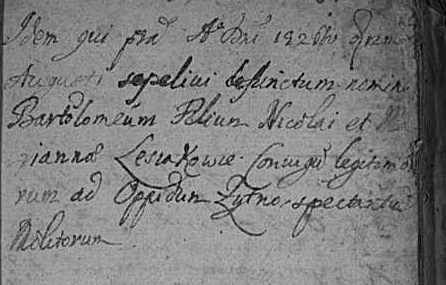 Idem qui pra͠ Ao Dni 182
Augusti sepelivi defunctum nomine
Bartolomeum Filium Nicolai et
rianna Lesiakowie Coniugu legitimo
rum ad Oppidum Zytno spectantiu
Molitorum